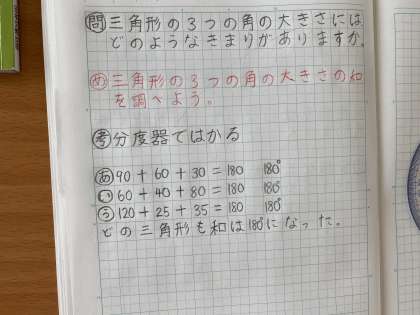 問三角形の3つの角の大きさには
どのようなきまりがありますか。
め三角形の3つの角の大きさの和
を調べよう。
考分度器ではかる
あ90+60+30=180 180°
い60+40+80=180 180°
う120+25+35=180 180°
どの三角形も和は180°になった。